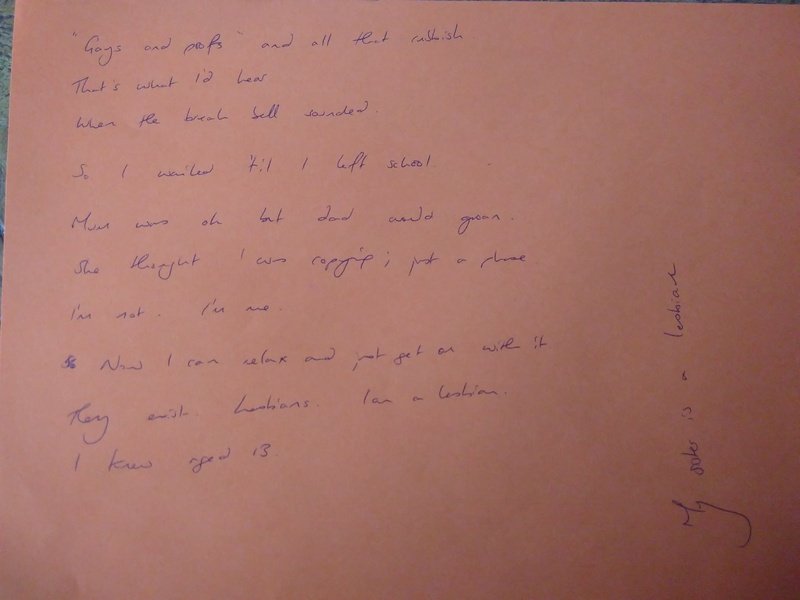 "Gays and poofs" and all that rubbish
That's what I'd hear
When the break bell sounded.
So I waited 'til I left school.
Mum was ok but dad would groan.
She thought I was copying; just a phase
I'm not. I'm me.
Now I can relax and just get on with it
They exist. Lesbians. I am a lesbian.
I knew aged 13.
My sister is a lesbian